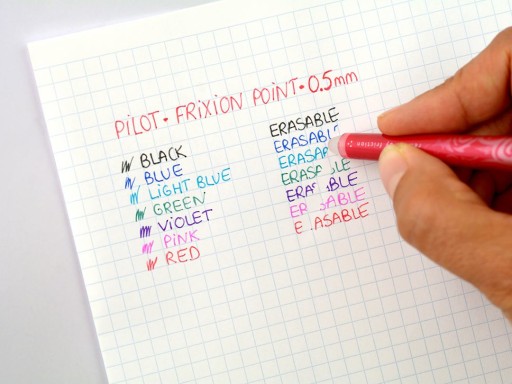 PiLOT • FRiXiON POiNT • 0.5mm
BLACK
BLUE
LiGHT BLUE
GREEN
ViOLET
PiNK
RED
ERASABLE
ERASABL
ERASA
ERASA LE
ERA ABLE
ER SABLE
E ASABLE